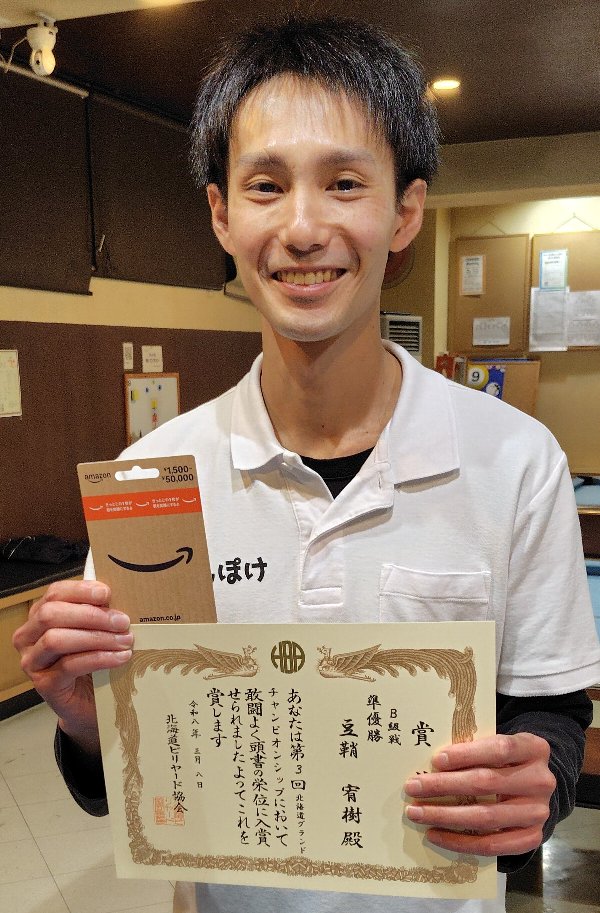 amazon
¥1,500~
¥50,000
amazon.co.jp
ぽけ
HBA
賞
B級戦
準優勝
豆鞘 宥樹 殿
あなたは第3回北海道グランド
チャンピオンシップにおいて
敢闘よく頭書の栄位に入賞
せられましたよってこれを
賞します
令和八年 三月 八日
北海道ビリヤード協会
9